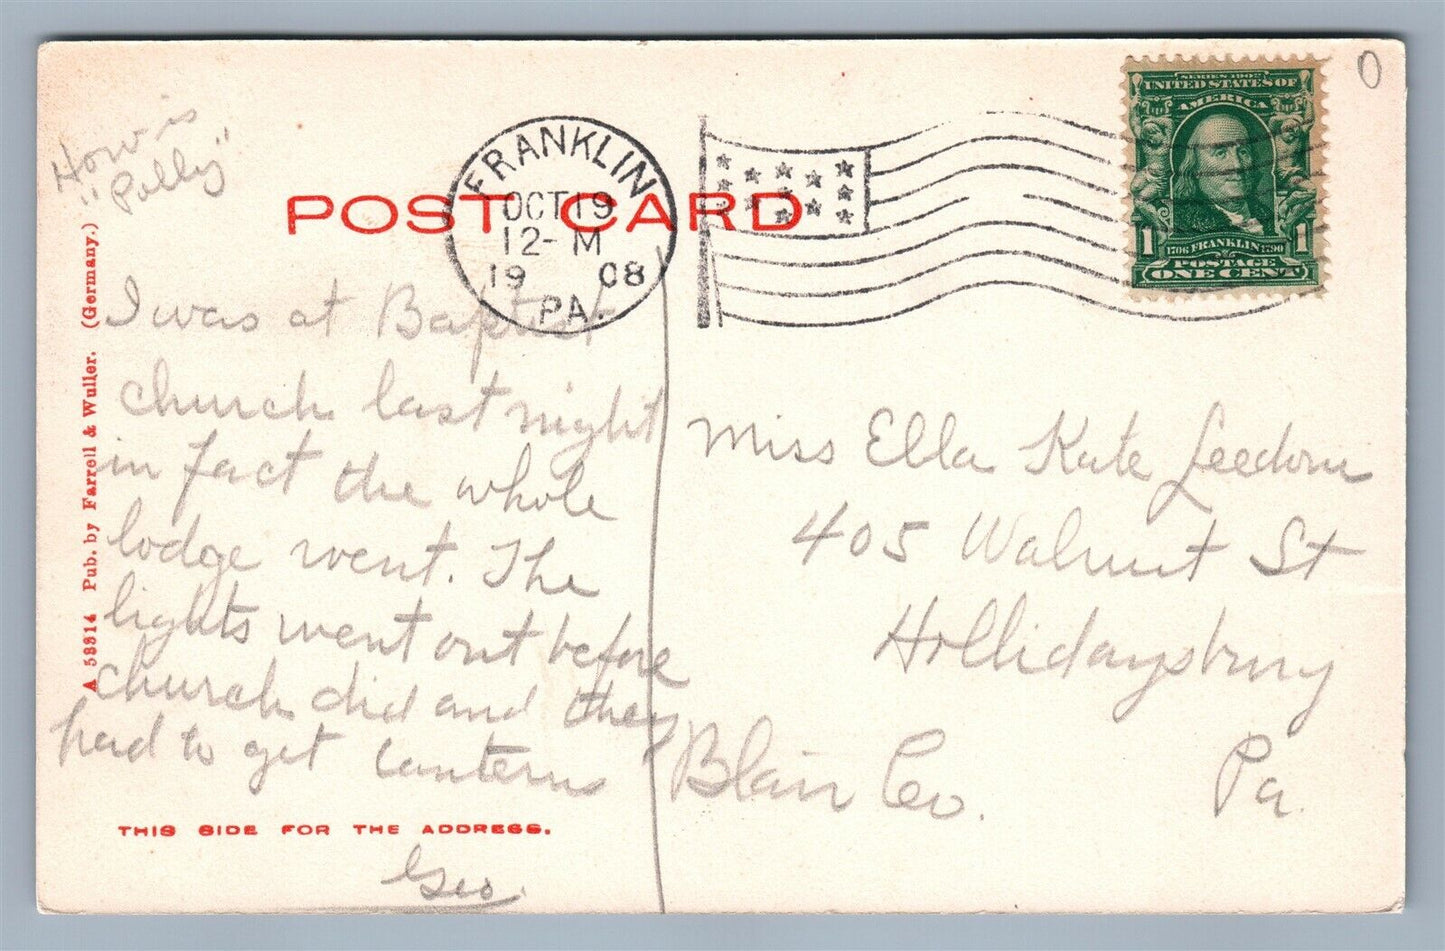 How is
"Polly"
POST CARD
FRANKLIN
OCT 19
12- M
19 08
PA.
SERIES 1902
UNITED STATES OF
AMERICA
1 1706 FRANKLIN 1790 1
POSTAGE
ONE CENT
O
A 53814 Pub. by Farrell & Wuller. (Germany.)
I was at Baptist
church last night
in fact the whole
lodge went. The
lights went out before
church did and they
had to get lanterns
THIS SIDE FOR THE ADDRESS.
Geo.
Miss Ella Kate Leedom
405 Walnut St
Hollidaysburg
Blair Co. Pa.